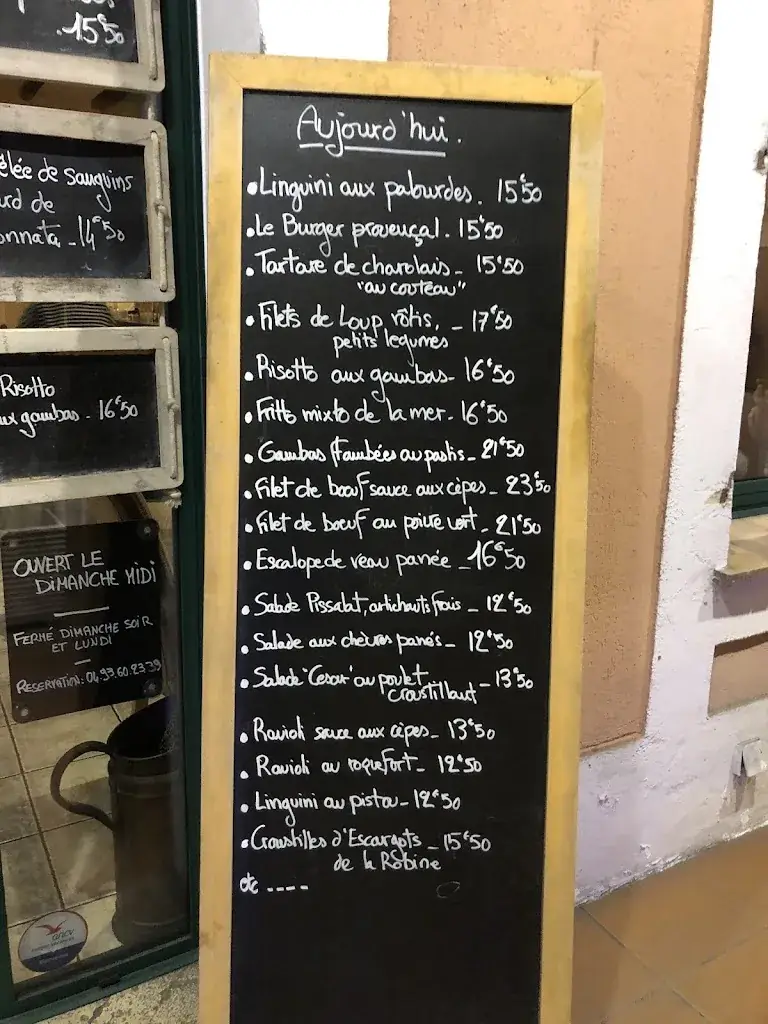 15€50
elée de sanguins
ard de
onnata - 14€50
Risotto
ux gambas - 16€50
OUVERT LE
DIMANCHE MIDI
FERMÉ DIMANCHE SOIR
ET LUNDI
RESERVATION: 04.93.60.23.39
ANCV
Aujourd'hui.
• Linguini aux palourdes. 15€50
• Le Burger provençal. 15€50
• Tartare de charolais - 15€50
"au couteau"
• Filets de Loup rôtis, - 17€50
petits legumes
• Risotto aux gambas - 16€50
• Fritto mixto de la mer. 16€50
• Gambas flambées au pastis - 21€50
• Filet de bœuf sauce aux cèpes - 23€50
• Filet de boeuf au poivre vert - 21€50
• Escalope de veau panée - 16€50
• Salade Pissalat, artichauts frais - 12€50
• Salade aux chèvres panés - 12€50
• Salade "Cesar" au poulet - 13€50
croustillant
• Ravioli sauce aux cèpes - 13€50
• Ravioli au roquefort - 12€50
• Linguini au pistou - 12€50
• Croustilles d'Escargots - 15€50
de la Robine
etc ----